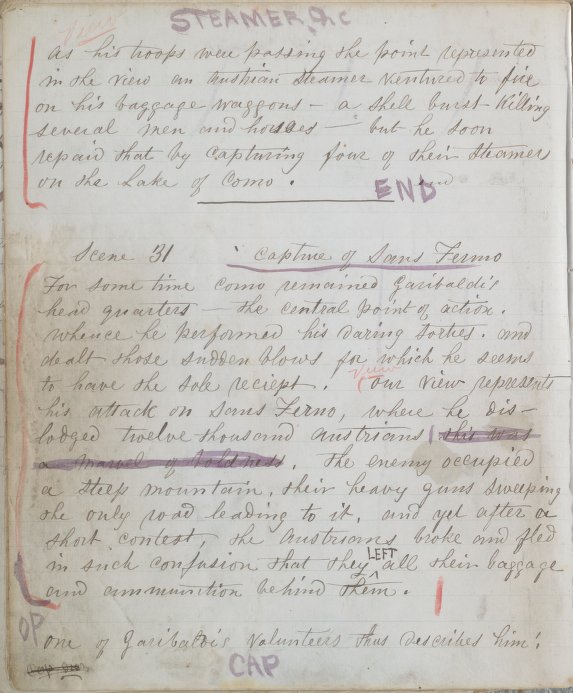 STEAMER, &c
View
As his troops were passing the point represented
in the view an Austrian Steamer ventured to fire
on his baggage waggons – a shell burst Killing
several men and horses – but he soon
repaid that by capturing four of their Steamers
on the Lake of Como.
END
Scene 31 Capture of Sans Fermo
For some time Como remained Garibaldi's
head quarters – the central point of action.
whence he performed his daring sorties. and
dealt those sudden blows for which he seems
to have the sole reciept. View Our view represents
his attack on Sans Ferno, where he dis-
lodged twelve thousand Austrians this was
a marvel of boldness. The enemy occupied
a steep mountain, their heavy guns sweeping
the only road leading to it, and yet after a
short contest, the Austrians broke and fled
in such confusion that they LEFT all their baggage
and ammunition behind them.
OP
One of Garibaldi's Volunteers thus describes him!
CAP